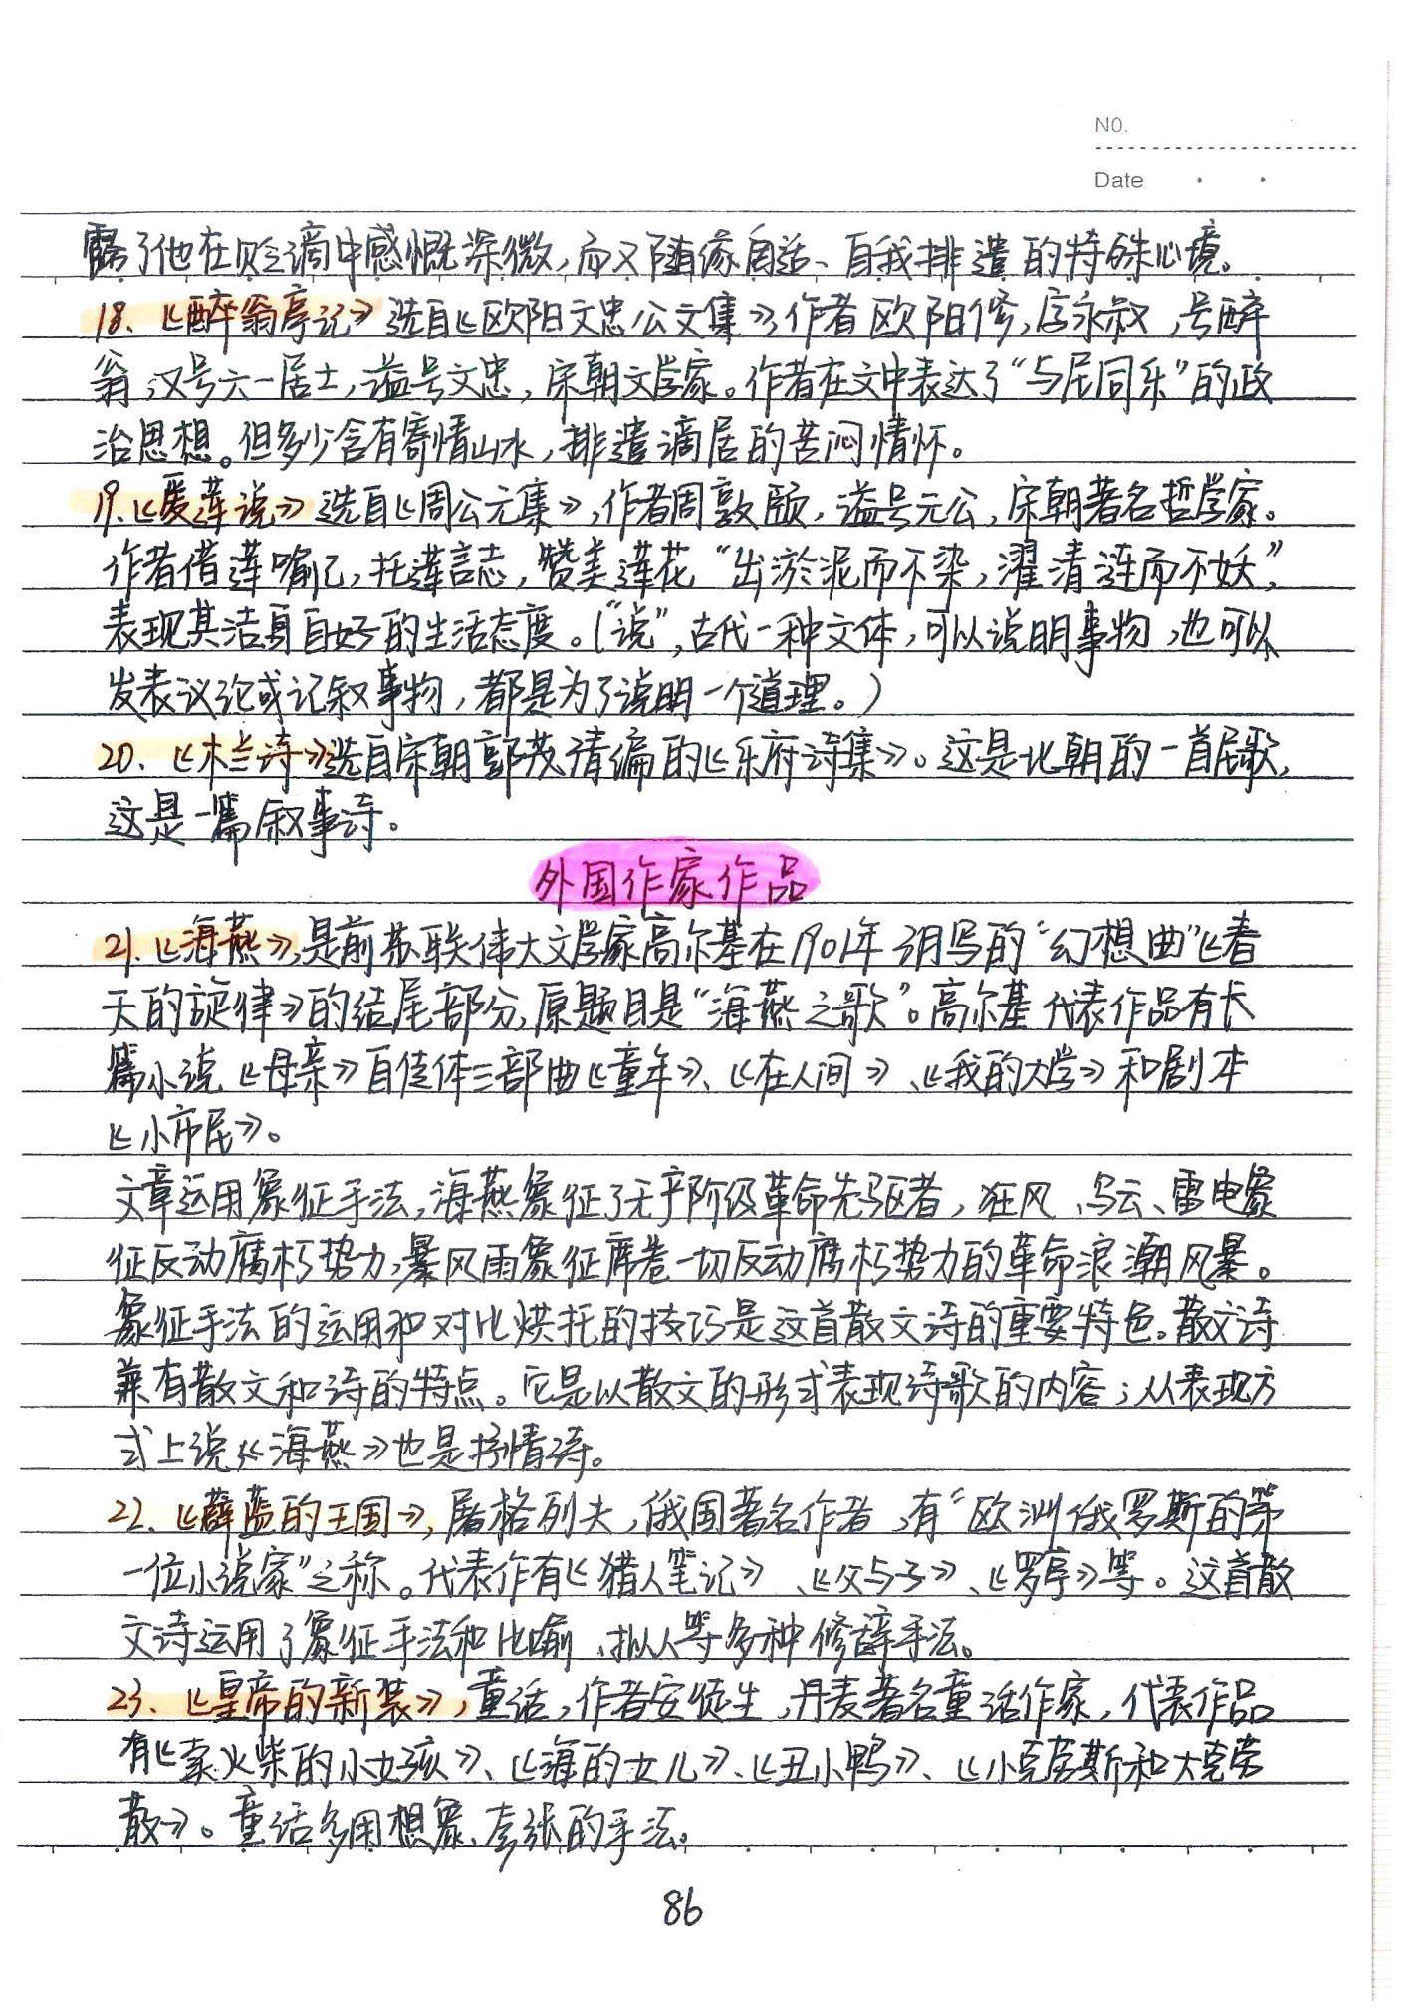 NO.
Date
露了他在贬谪中感慨深微,而又随缘自适、自我排遣的特殊心境。
18、《醉翁亭记》选自《欧阳文忠公文集》,作者欧阳修,字永叔,号醉
翁,又号六一居士,谥号文忠,宋朝文学家。作者在文中表达了“与民同乐”的政
治思想。但多少含有寄情山水,排遣谪居的苦闷情怀。
19、《爱莲说》选自《周公元集》,作者周敦颐,谥号元公,宋朝著名哲学家。
作者借莲喻己,托莲言志,赞美莲花“出淤泥而不染,濯清涟而不妖”,
表现其洁身自好的生活态度。(“说”,古代一种文体,可以说明事物,也可以
发表议论或记叙事物,都是为了说明一个道理。)
20、《木兰诗》选自宋朝郭茂清编的《乐府诗集》。这是北朝的一首民歌,
这是一篇叙事诗。
外国作家作品
21、《海燕》,是前苏联伟大文学家高尔基在1901年3月写的“幻想曲”《春
天的旋律》的结尾部分,原题目是“海燕之歌”。高尔基代表作品有长
篇小说《母亲》自传体三部曲《童年》、《在人间》、《我的大学》和剧本
《小市民》。
文章运用象征手法,海燕象征了无产阶级革命先驱者,狂风、乌云、雷电象
征反动腐朽势力,暴风雨象征席卷一切反动腐朽势力的革命浪潮风暴。
象征手法的运用和对比烘托的技巧是这首散文诗的重要特色。散文诗
兼有散文和诗的特点。它是以散文的形式表现诗歌的内容;从表现方
式上说《海燕》也是抒情诗。
22、《蔚蓝的王国》,屠格列夫,俄国著名作者,有“欧洲俄罗斯的第
一位小说家”之称。代表作有《猎人笔记》、《父与子》、《罗亭》等。这首散
文诗运用了象征手法和比喻、拟人等多种修辞手法。
23、《皇帝的新装》,童话,作者安徒生,丹麦著名童话作家,代表作品
有《卖火柴的小女孩》、《海的女儿》、《丑小鸭》、《小克劳斯和大克劳
散》。童话多用想象、夸张的手法。
86